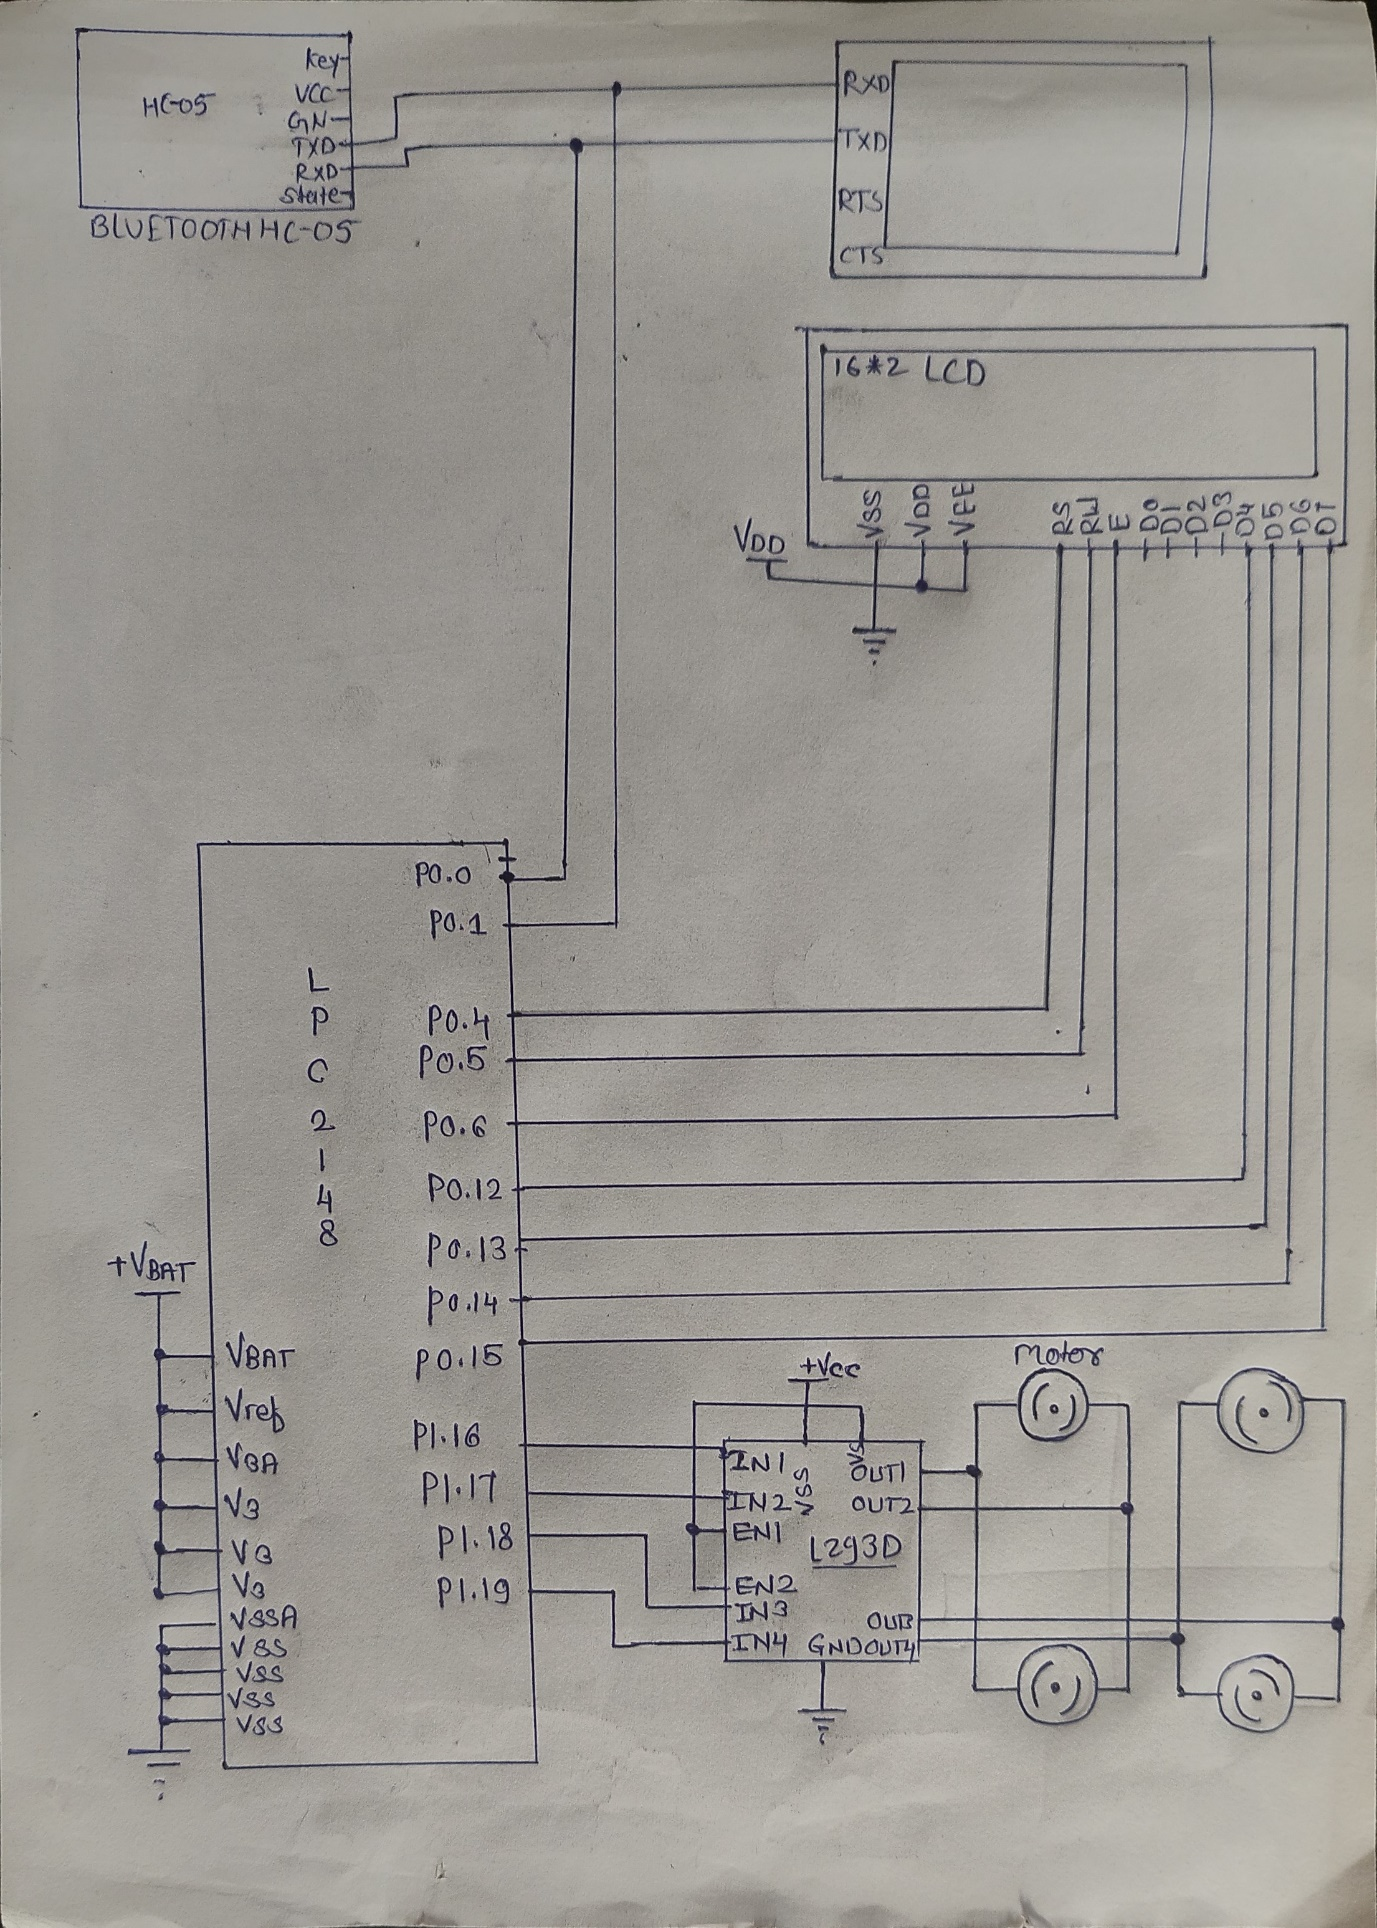 Key
VCC
HC-05
GN
TXD
RXD
State
BLUETOOTH HC-05
RXD
TXD
RTS
CTS
16*2 LCD
VSS
VDD
VEE
RS
RW
E
D0
D1
D2
D3
D4
D5
D6
D7
VDD
P0.0
P0.1
L
P
C
2
1
4
8
P0.4
P0.5
P0.6
P0.12
P0.13
P0.14
P0.15
P1.16
P1.17
P1.18
P1.19
+VBAT
VBAT
Vref
V3A
V3
V3
V3
VSSA
VSS
VSS
VSS
VSS
+Vcc
IN1
IN2
EN1
EN2
IN3
IN4
VSS
VS
OUT1
OUT2
L293D
OU3
GND OUT4
Motor